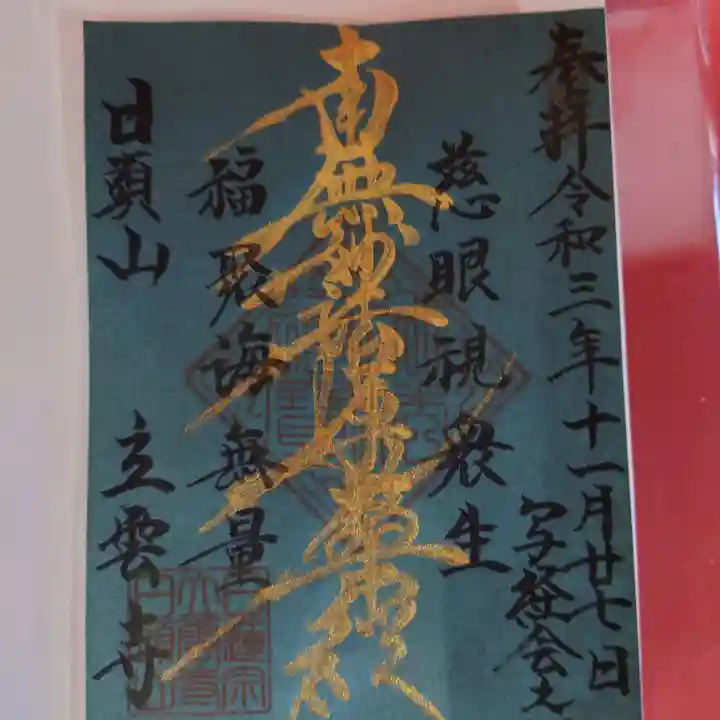 奉拝 令和三年十一月廿七日
写経会
慈眼視衆生
南無妙法蓮華経
福聚海無量
日頭山 立雲寺